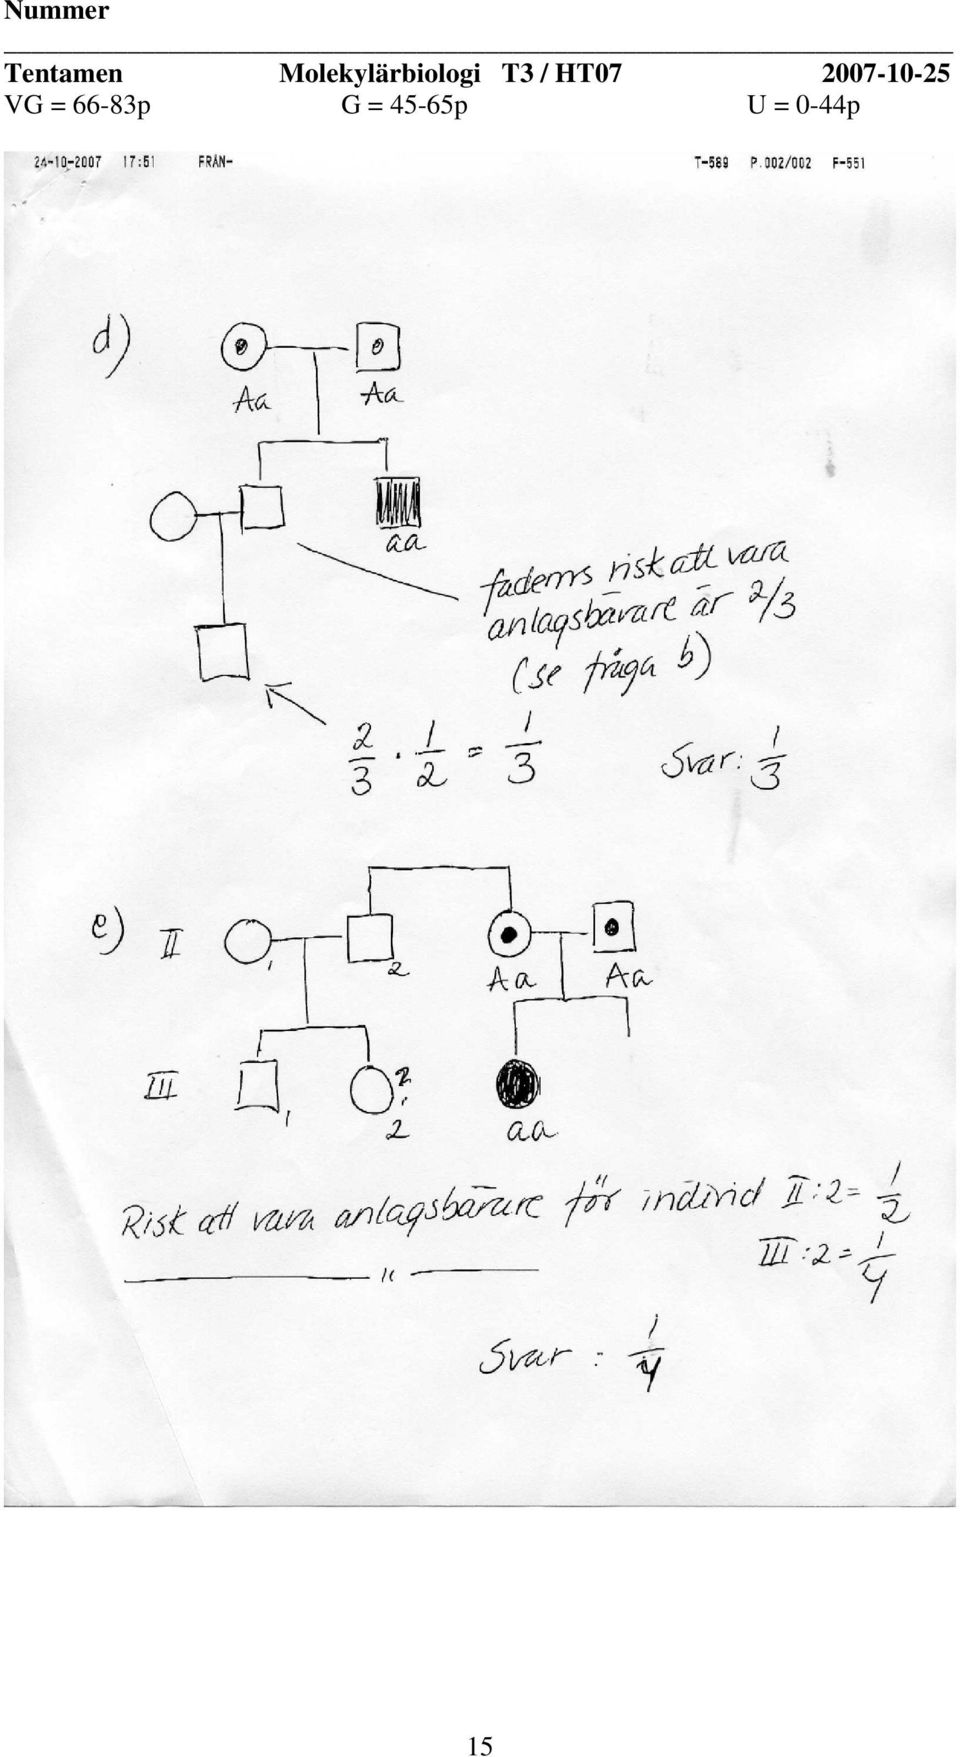 Nummer
Tentamen Molekylärbiologi T3 / HT07 2007-10-25
VG = 66-83p G = 45-65p U = 0-44p
24-10-2007 17:51 FRÅN- T-589 P.002/002 F-551
d)
Aa Aa
aa
faderns risk att vara
anlagsbärare är 2/3
(se fråga b)
2/3 · 1/2 = 1/3 Svar: 1/3
e) II 1 2 Aa Aa
III 1 ? 2 aa
Risk att vara anlagsbärare för individ II:2 = 1/2
—— " —— III:2 = 1/4
Svar : 1/4
15